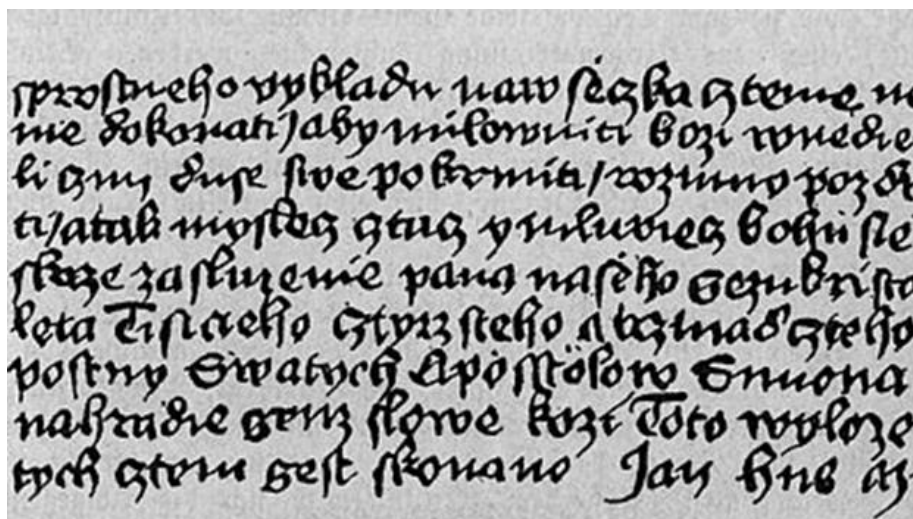 sprostneho vykladu naw sieczka czteme n
nie dokonati / aby milownici bozi wnedie
li czim duse swe pokrmiti / rozumno pozdi
ti / atak myslecz ctucz y miluwiecz bohu sie
skrze zasluzenie pana naseho gezukrista
leta Tisicieho cztyrzsteho a trzinadczteho
postny Swatych Aposstolow Simona
nahradie genz slowe kozi Toto wyloze
tych cztem gest skonano Jan hus